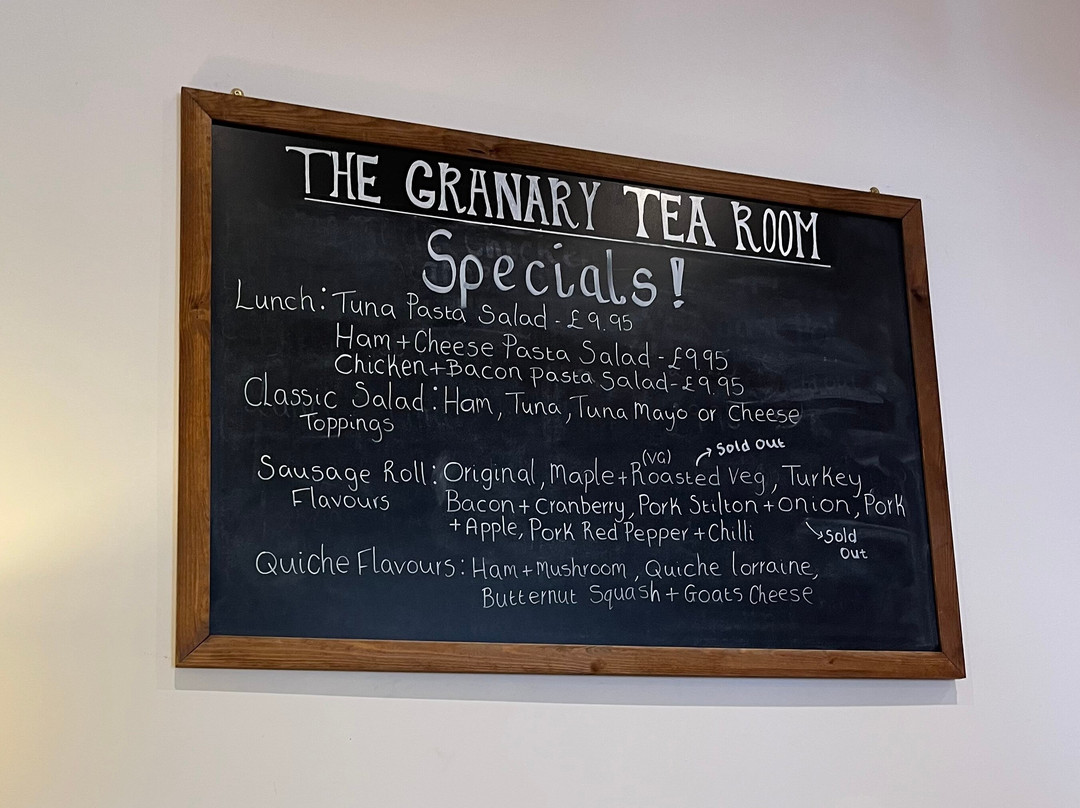 THE GRANARY TEA ROOM
Specials!
Lunch: Tuna Pasta Salad - £9.95
Ham + Cheese Pasta Salad - £9.95
Chicken + Bacon pasta Salad - £9.95
Classic Salad: Ham, Tuna, Tuna Mayo or Cheese
Toppings
(VG) Sold Out
Sausage Roll: Original, Maple + Roasted Veg, Turkey
Flavours Bacon + Cranberry, Pork Stilton + Onion, Pork
+ Apple, Pork Red Pepper + Chilli
Sold
Out
Quiche Flavours: Ham + Mushroom, Quiche lorraine,
Butternut Squash + Goats Cheese